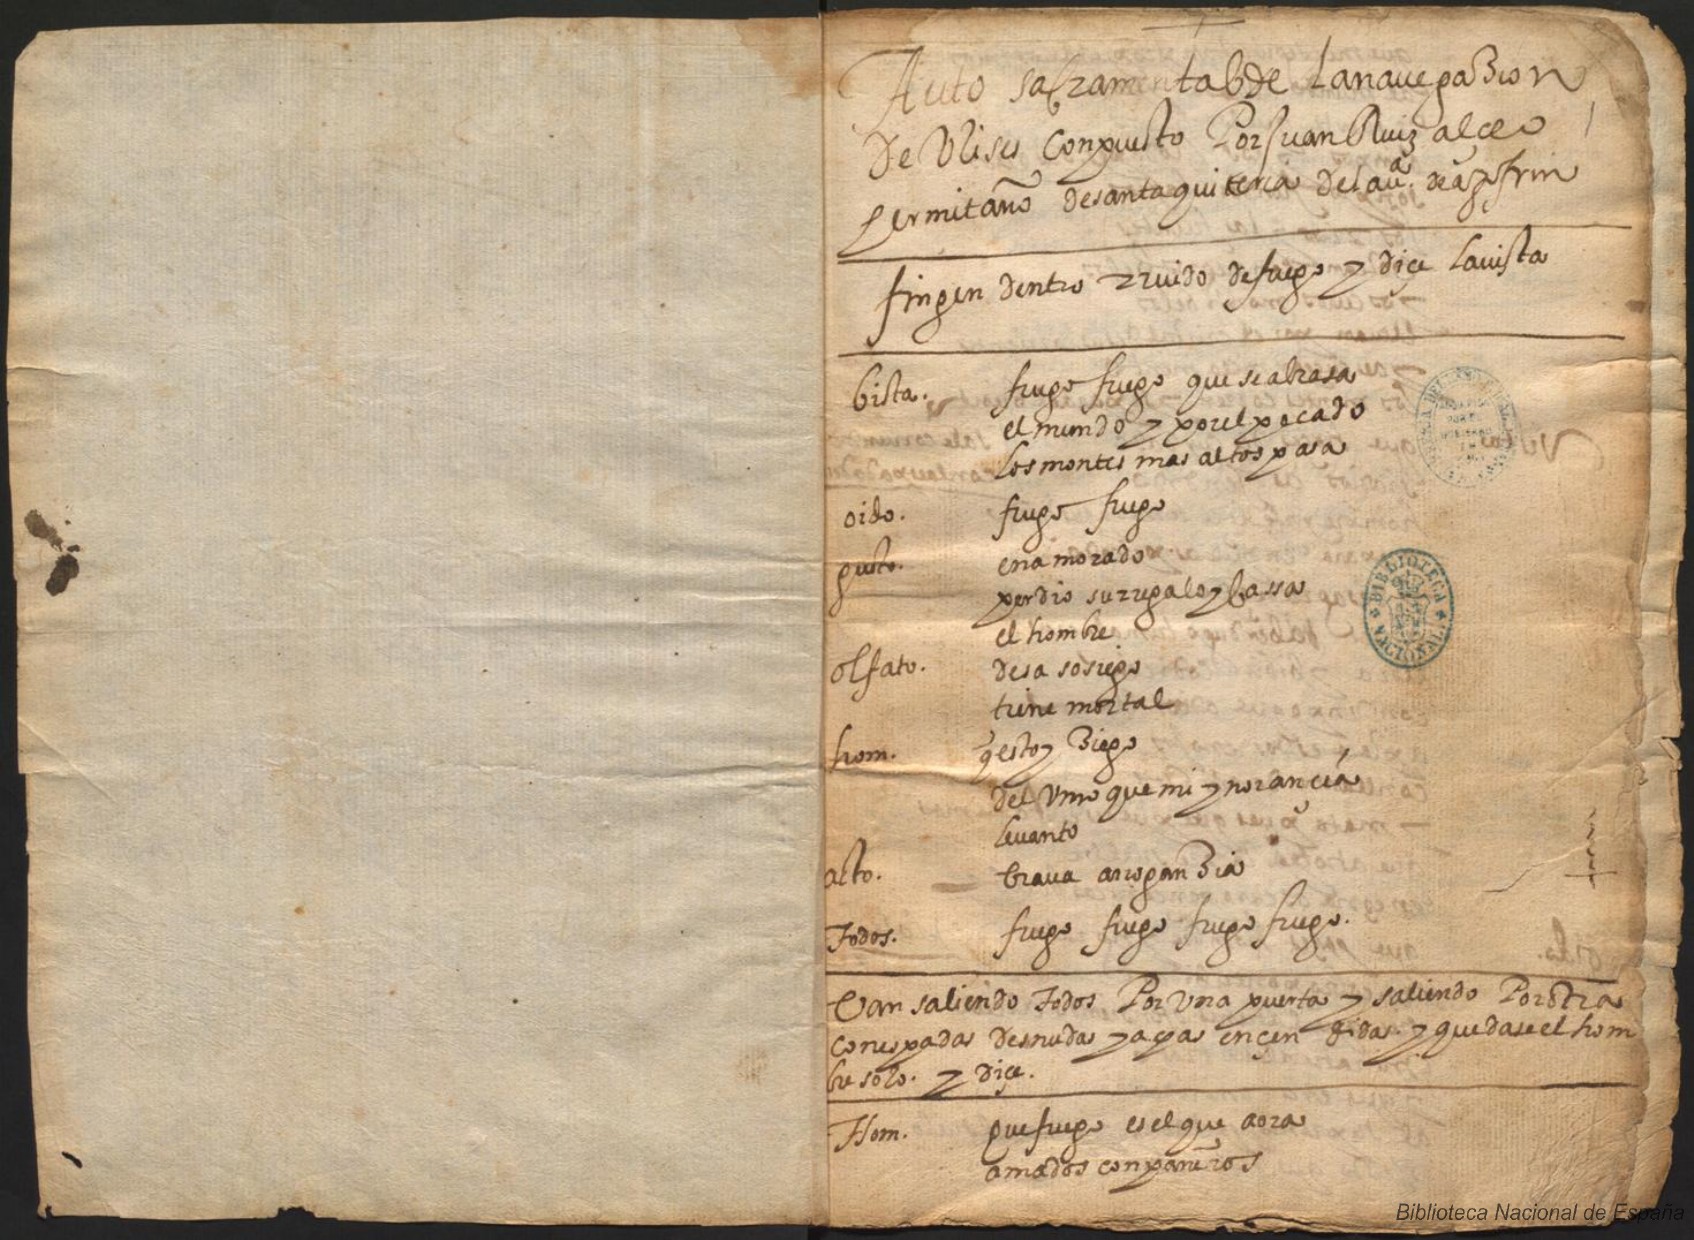 Auto sacramental de la nauegaçion
1
de Ulises conpuesto Por Juan Ruiz alceo
hermitaño de santa quiteria de la uᵃ.
fingen dentro rruido de fuego y diçe la uista
bista. fuego fuego que se abrasa
el mundo y por el pecado
los montes mas altos pasa
oido. fuego fuego
gusto. enamorado
perdio su rregalo y cassa
el hombre
olfato. desasosiego
tiene mortal
hom. q̃ estoy çiego
del vmo que mi ynorançia
leuanto
acto. braua arrogançia
Todos. fuego fuego fuego fuego.
Van saliendo Todos Por vna puerta y saliendo Por otra
con espadas desnudas y açhas ençendidas. y quedase el hom
bre solo. y diçe.
Hom. que fuego es el que aora
amados conpañeros
BIBLIOTECA NACIONAL
Biblioteca Nacional de España